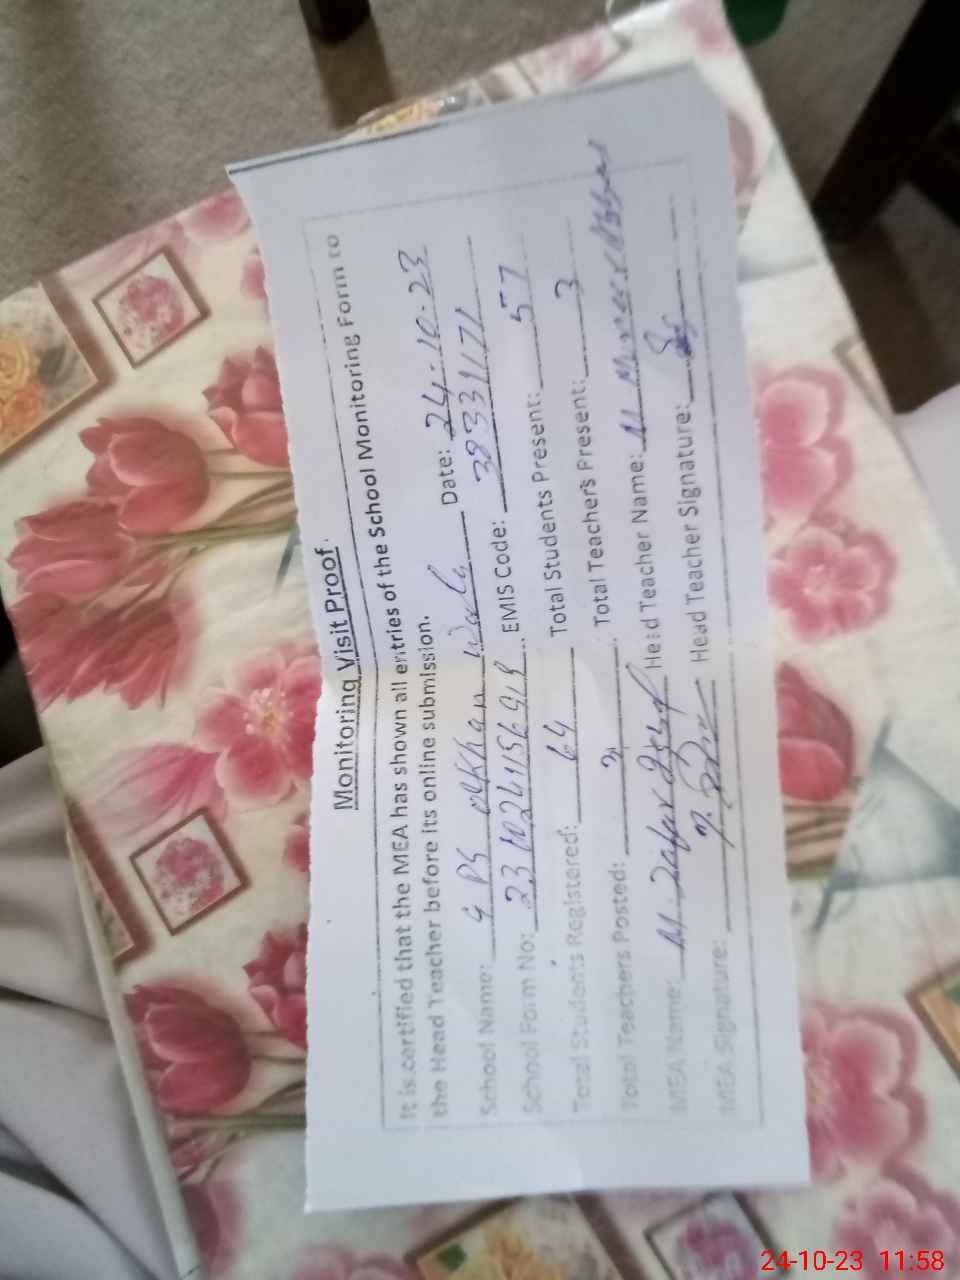 Monitoring Visit Proof
It is certified that the MEA has shown all entries of the School Monitoring Form to
the Head Teacher before its online submission.
School Name: G PS Date: 24-10-23
School Form No: EMIS Code: 38331171
Total Students Registered: 64 Total Students Present: 57
Total Teachers Posted: 3 Total Teachers Present: 3
MEA Name: M. Zafar Head Teacher Name: M
MEA Signature: Head Teacher Signature:
24-10-23 11:58